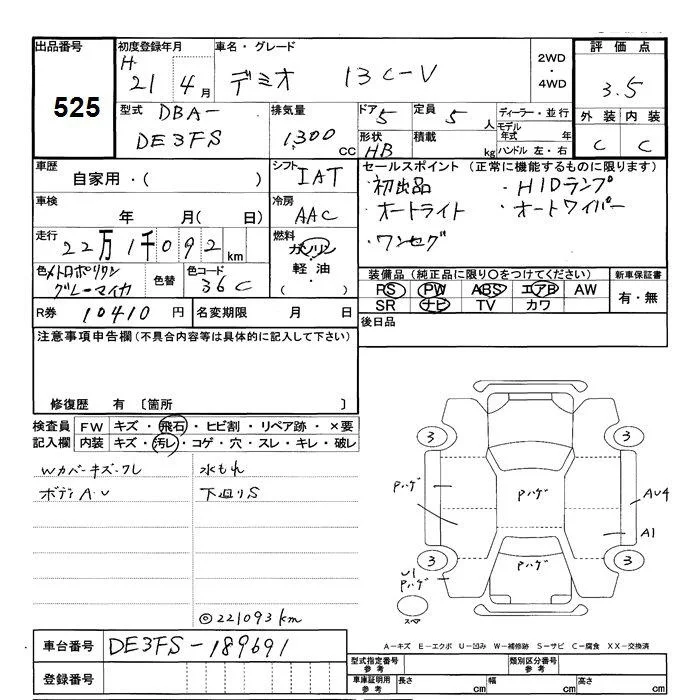 出品番号 初度登録年月 車名・グレード 2WD ・ 4WD 評価点
525 H. 21年 4月 デミオ 13C-V 3.5
型式 DBA- DE3FS 排気量 1,300 cc ドア 5 形状 HB 定員 5 人 積載 kg ディーラー・並行 モデル年式 年 ハンドル 左・右 外装 C 内装 C
車歴 自家用・( ) シフト IAT セールスポイント (正常に機能するものに限ります)
車検 年 月( 日) 冷房 AAC
・初出品 ・HIDランプ
・オートライト ・オートワイパー
・ワンセグ
走行 22万1千092km 燃料 ガソリン・軽油・( )
色 メトロポリタングレーマイカ 色替 色コード 36C
装備品 (純正品に限り○をつけてください) 新車保証書
RS PW ABS エアB AW 有・無
SR ナビ TV カワ
R券 10410 円 名変期限 月 日 後日品
注意事項申告欄 (不具合内容等は具体的に記入して下さい)
修復歴 有 〔箇所 〕
検査員 FW キズ・飛石・ヒビ割・リペア跡・×要
記入欄 内装 キズ・汚レ・コゲ・穴・スレ・キレ・破レ
Wカバーキズ・ワレ 水もれ
ボディA.U 下廻りS
3 3
Pハゲ Pハゲ AU4
A1
3 Pハゲ 3
U1
Pハゲ
スペア
◎221093km
A－キズ E－エクボ U－凹み W－補修跡 S－サビ C－腐食 XX－交換済
車台番号 DE3FS-189691
登録番号
型式指定番号 参考 類別区分番号 参考
車庫証明用 参考 長さ cm 幅 cm 高さ cm